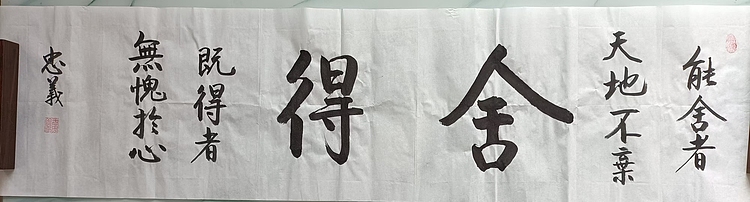 能舍者
天地不棄
舍
得
既得者
無愧於心
忠義